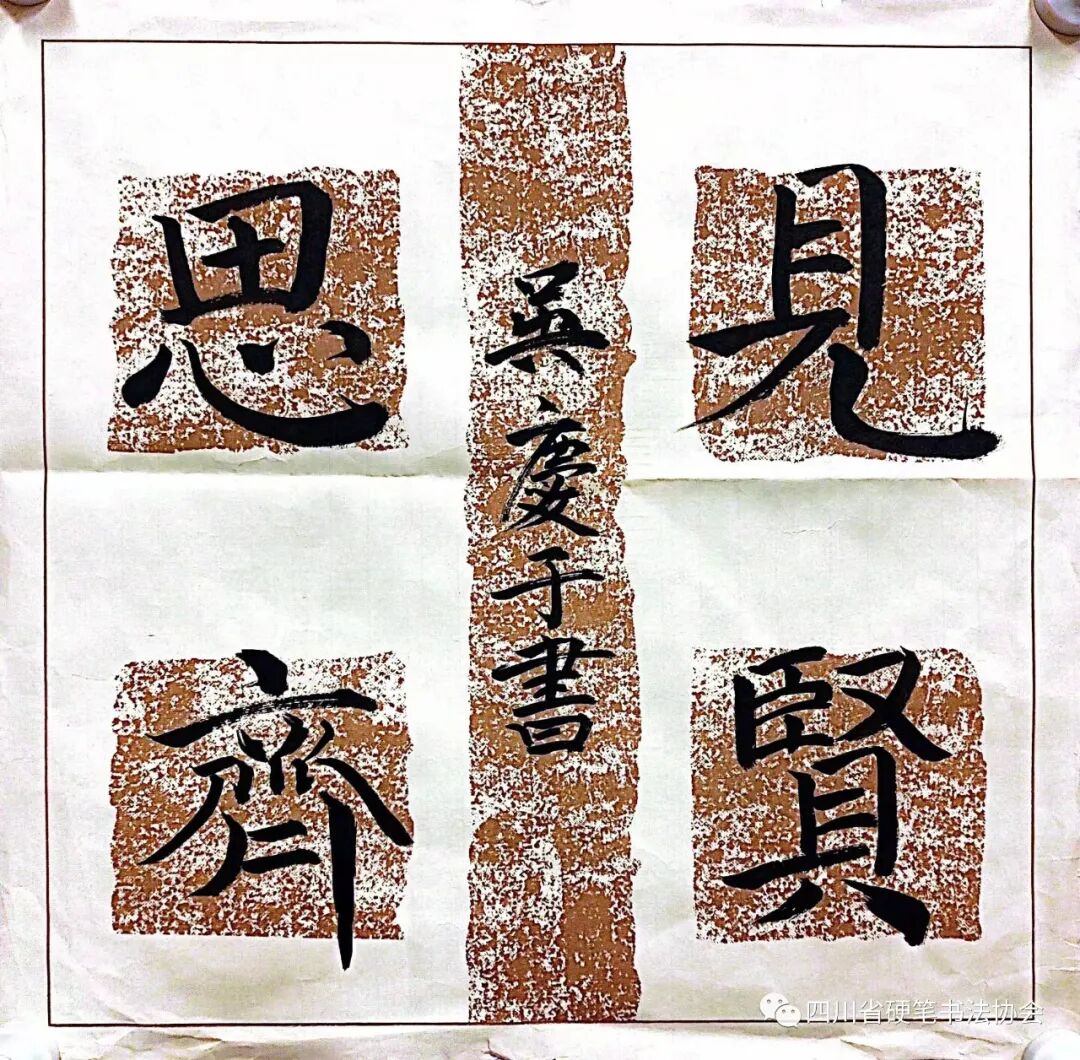 見賢
思齊
吳慶于書
四川省硬笔书法协会